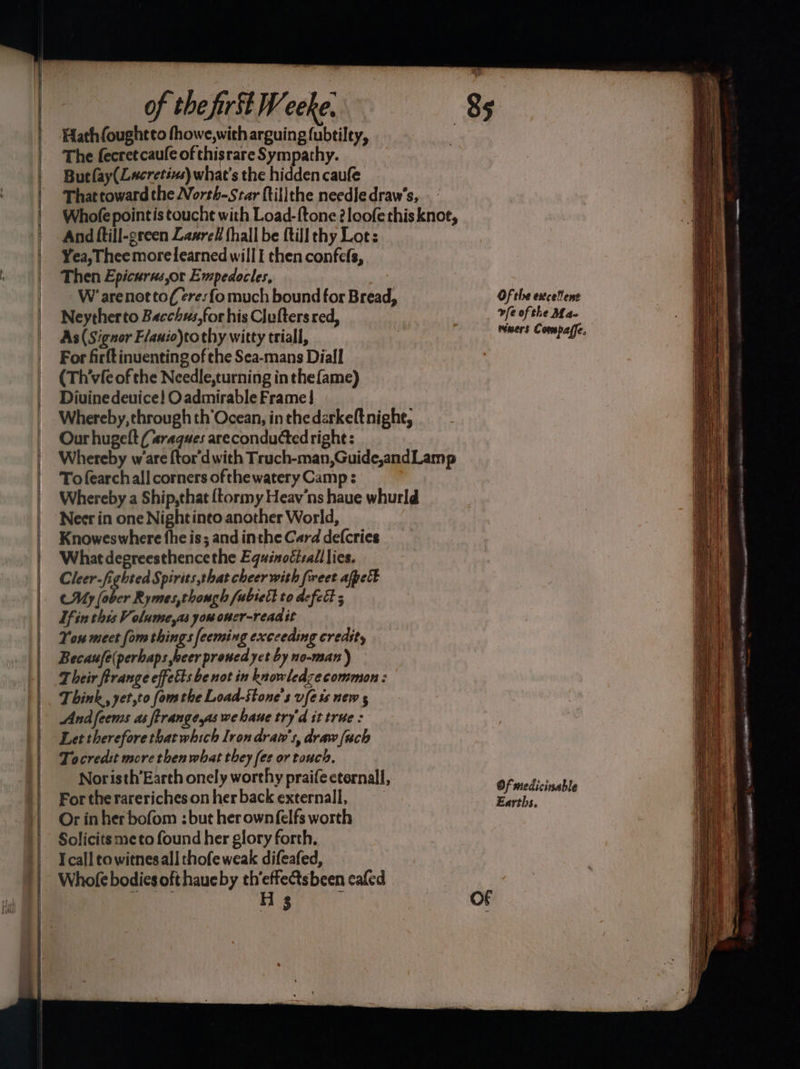 of the first Weeke. 85
Hath sought to showe, with arguing subtilty,
The secret cause of this rare Sympathy.
But say (Lucretius) what's the hidden cause
That toward the North-Star still the needle draw's,
Whose point is toucht with Load-stone? loose this knot,
And still-green Laurell shall be still thy Lot:
Yea, Thee more learned will I then confess,
Then Epicurus, or Empedocles.
W'are not to Ceres so much bound for Bread,
Neyther to Bacchus, for his Clusters red,
As (Signor Flauio) to thy witty triall,
For first inuenting of the Sea-mans Diall
(Th'vse of the Needle, turning in the same)
Diuine deuice! O admirable Frame!
Whereby, through th'Ocean, in the darkest night,
Our hugest Caraques are conducted right:
Whereby w'are stor'd with Truch-man, Guide, and Lamp
To search all corners of the watery Camp:
Whereby a Ship, that stormy Heav'ns haue whurld
Neer in one Night into another World,
Knowes where she is; and in the Card descries
What degrees thence the Equinoctiall lies.
Cleer-sighted Spirits, that cheer with sweet aspect
My sober Rymes, though subiect to defect;
If in this Volume, as you ouer-read it
You meet som things seeming exceeding credit,
Because (perhaps) heer proued yet by no-man)
Their strange effects be not in knowledge common:
Think, yet, to som the Load-stone's vse is new;
And seems as strange, as we haue try'd it true:
Let therefore that which Iron draw's, draw such
To credit more then what they see or touch.
Nor is th'Earth onely worthy praise eternall,
For the rare riches on her back externall,
Or in her bosom: but her own selfs worth
Solicits me to sound her glory forth.
I call to witnes all those weak diseased,
Whose bodies oft haue by th'effects been eased
H 3 Of
Of the excellent
vse of the Ma-
riners Compasse.
Of medicinable
Earths.